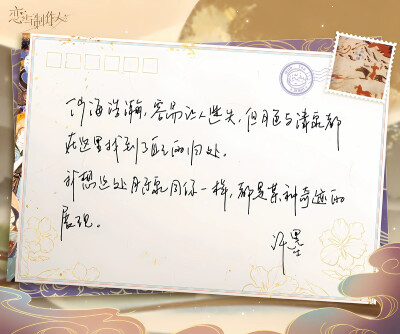 恋与制作人
沙海浩瀚，容易让人迷失，但月色与清泉都
在这里找到了自己的归处。
我想这处月牙泉同你一样，都是某种奇迹的
展现。
许墨